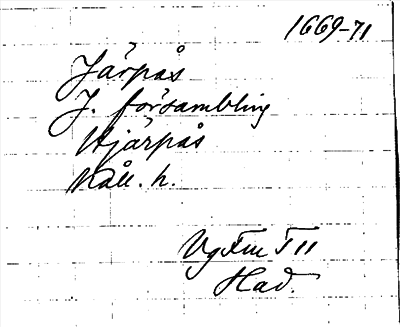 1669-71
Järpås
J. försambling
Hjärpås
Kåll. h.
VgFm I 11
Had.